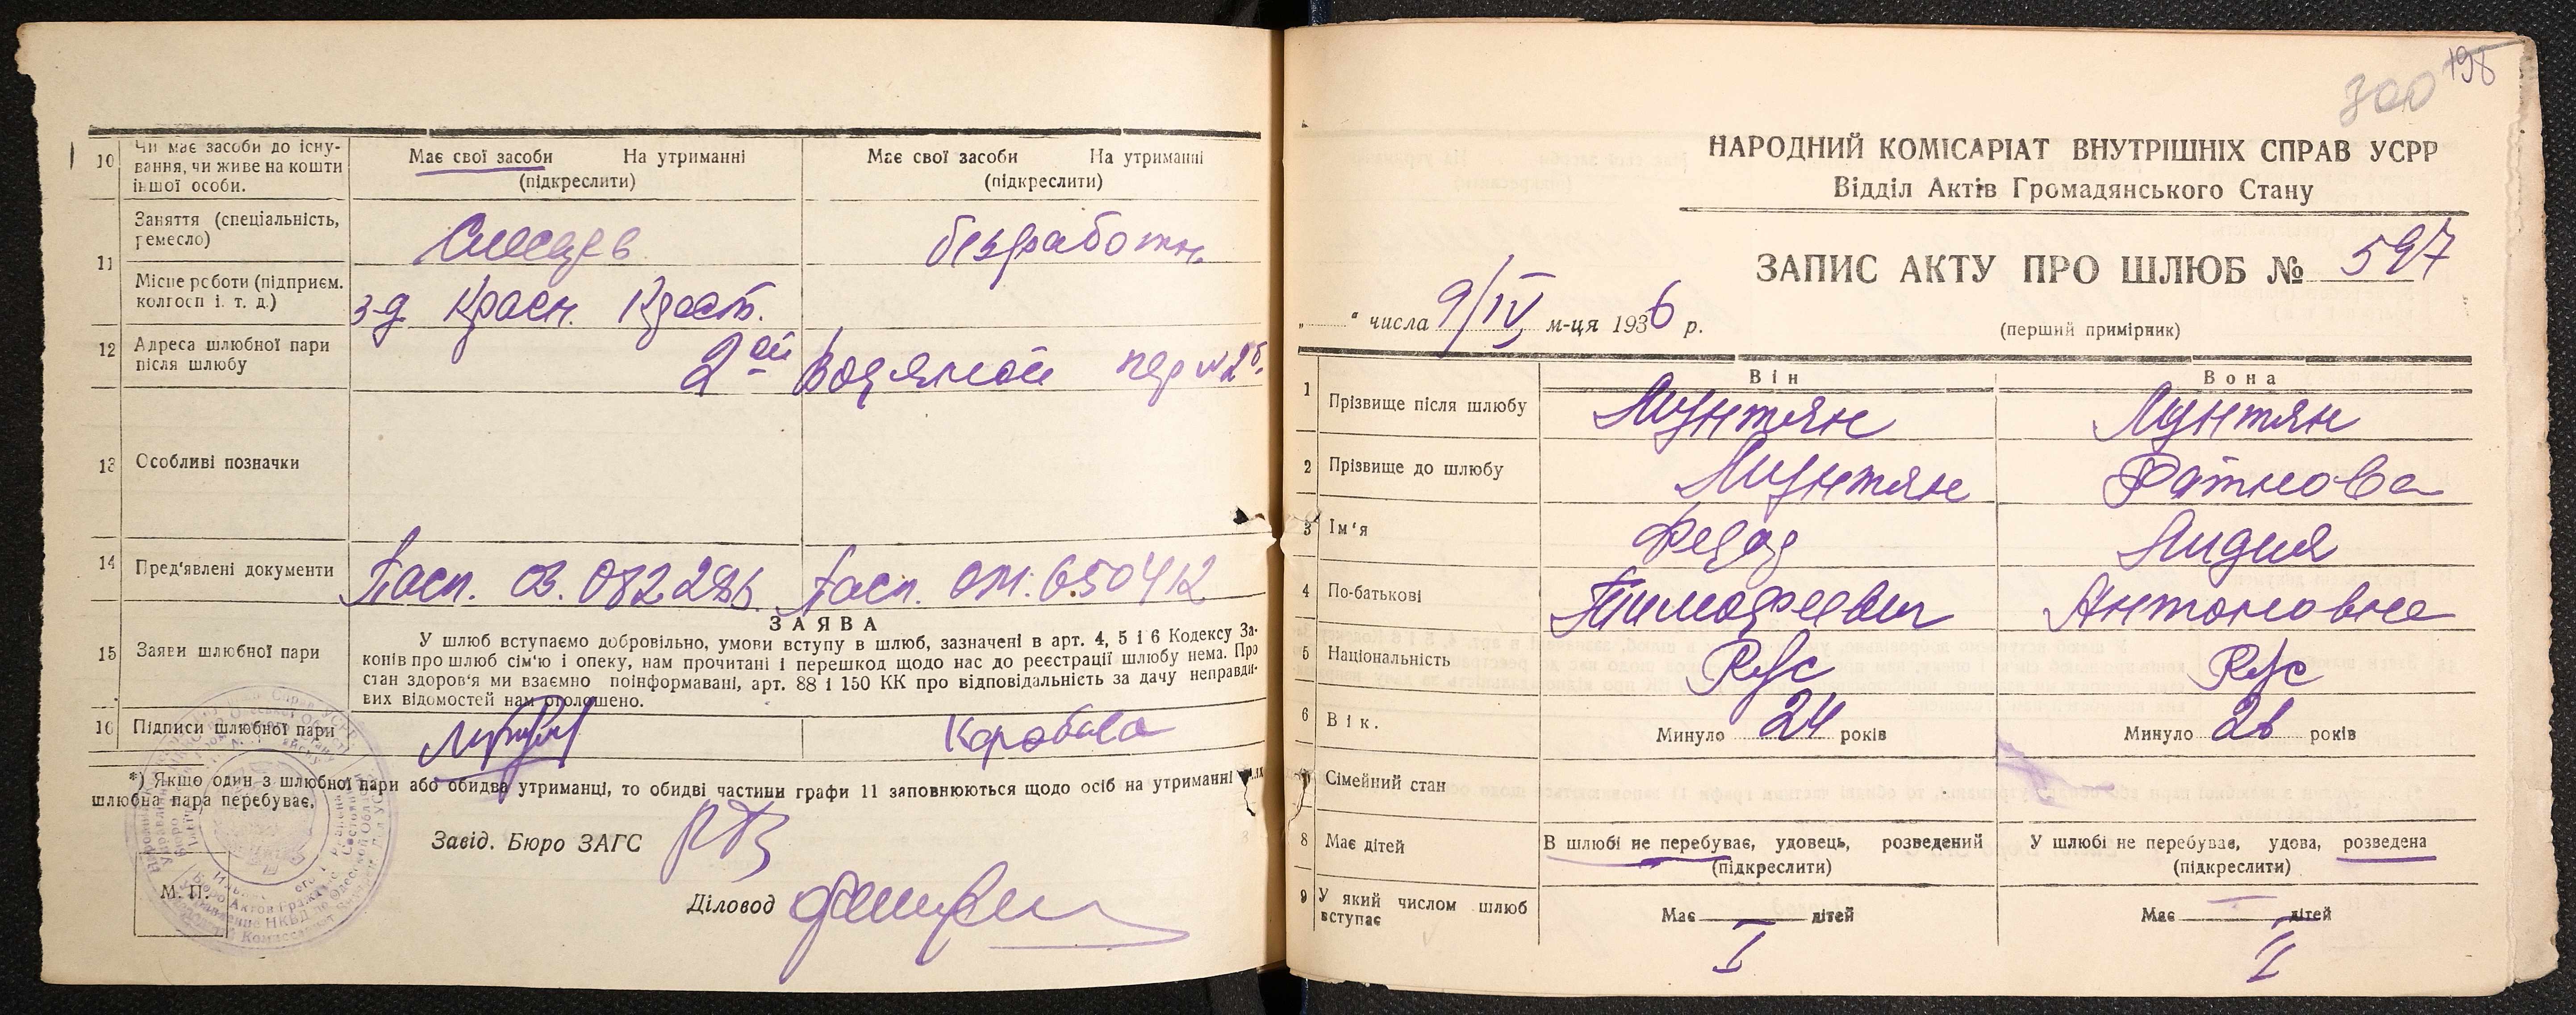 10 Чи має засоби до існування, чи живе на кошти іншої особи.
Має свої засоби На утриманні
(підкреслити)
Має свої засоби На утриманні
(підкреслити)
11 Заняття (спеціальність, ремесло)
Слесарь
безработн.
Місце роботи (підприєм. колгосп і. т. д.)
з-д Красн. Крест.
12 Адреса шлюбної пари після шлюбу
2ой Водяной пер №
13 Особливі позначки
14 Пред'явлені документи
Пасп. ОЗ.
Пасп. ОМ. 650412
15 Заяви шлюбної пари
ЗАЯВА
У шлюб вступаємо добровільно, умови вступу в шлюб, зазначені в арт. 4, 5 і 6 Кодексу За-
конів про шлюб сім'ю і опеку, нам прочитані і перешкод щодо нас до реєстрації шлюбу нема. Про
стан здоров'я ми взаємно поінформавані, арт. 88 і 150 КК про відповідальність за дачу неправди-
вих відомостей нам оголошено.
16 Підписи шлюбної пари
*) Якшо один з шлюбної пари або обидва утриманці, то обидві частини графи 11 заповнюються щодо осіб на утриманні
шлюбна пара перебуває.
Завід. Бюро ЗАГС
М. П.
Діловод
300 198
НАРОДНИЙ КОМІСАРІАТ ВНУТРІШНІХ СПРАВ УСРР
Відділ Актів Громадянського Стану
ЗАПИС АКТУ ПРО ШЛЮБ № 597
" " числа 9/IV м-ця 1936 р.
(перший примірник)
Він Вона
1 Прізвище після шлюбу Мунтян Мунтян
2 Прізвище до шлюбу Мунтян
3 Ім'я Федор Лидия
4 По-батькові Тимофеевич Антоновна
5 Національність Рус Рус
6 Вік. Минуло 24 років Минуло років
7 Сімейний стан
8 Має дітей
В шлюбі не перебуває, удовець, розведений
(підкреслити)
У шлюбі не перебуває, удова, розведена
(підкреслити)
9 У який числом шлюб вступає
Має дітей
Має дітей
I
II